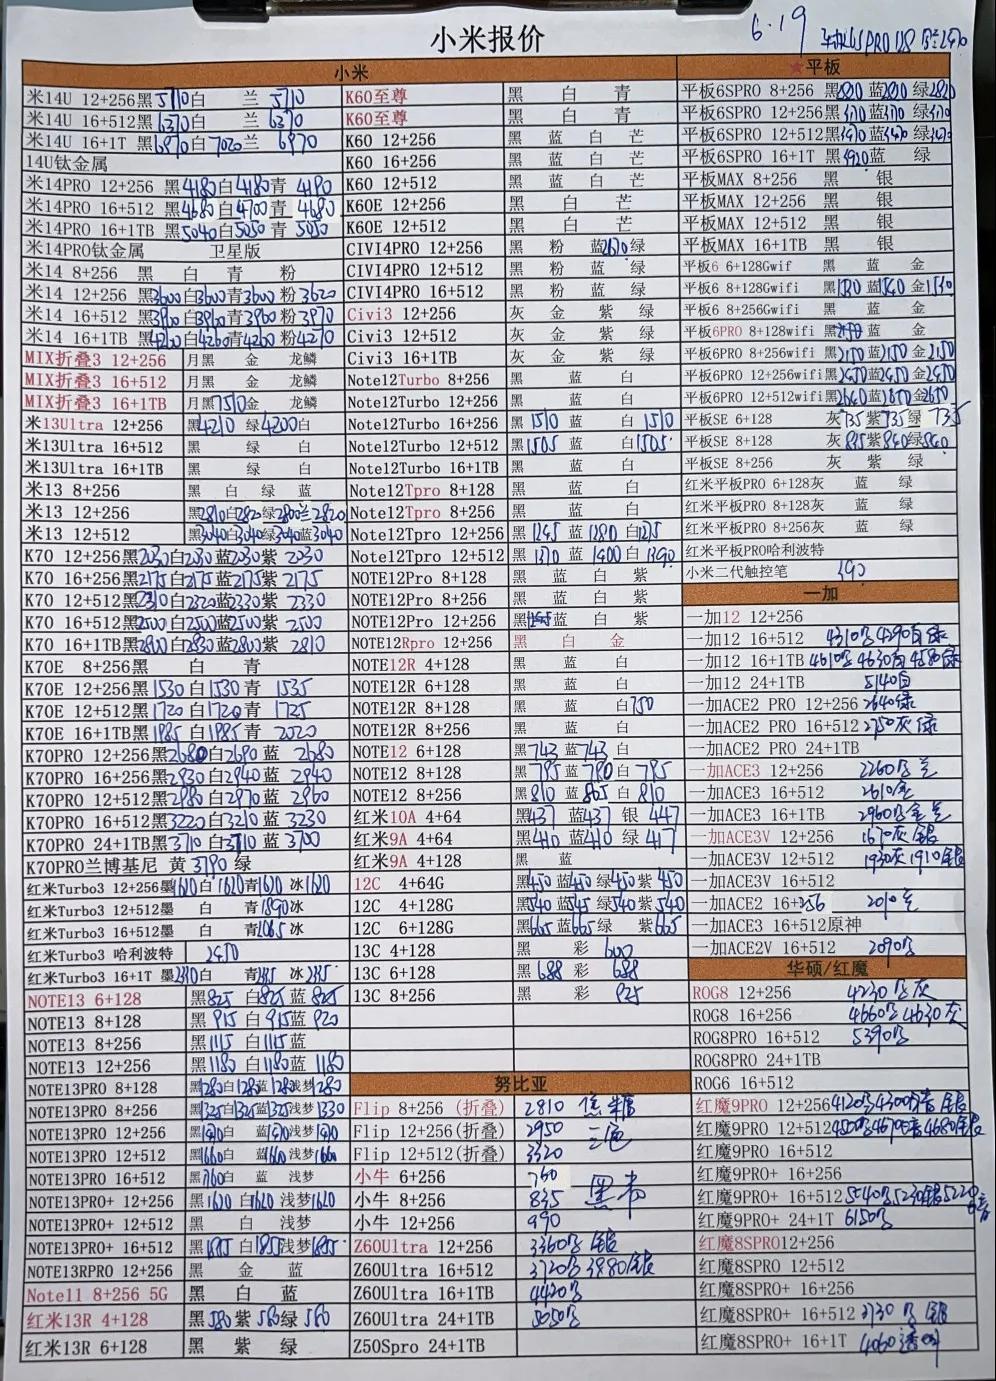 小米报价
6.19
小米
米14U 12+256黑5710白 兰 5710
米14U 16+512黑6370白 兰 6370
米14U 16+1T 黑6970白7020兰 6970
14U钛金属
米14PRO 12+256 黑4180白4180青 4190
米14PRO 16+512 黑4680白4700青 4680
米14PRO 16+1TB黑5040白5050 青 5050
米14PRO钛金属 卫星版
米14 8+256 黑 白 青 粉
米14 12+256 黑3600白3600青3600 粉3620
米14 16+512 黑3960白3960青3960 粉3970
米14 16+1TB 黑4260白4260青4260 粉4270
MIX折叠3 12+256 月黑 金 龙鳞
MIX折叠3 16+512 月黑 金 龙鳞
MIX折叠3 16+1TB 月黑7510金 龙鳞
米13Ultra 12+256 黑4210 绿4200白
米13Ultra 16+512 黑 绿 白
米13Ultra 16+1TB 黑 绿 白
米13 8+256 黑 白 绿 蓝
米13 12+256 黑2810白2820绿2800兰2820
米13 12+512 黑3040白3040绿3040蓝3040
K70 12+256黑2030白2030蓝2030紫 2030
K70 16+256黑2175白2175蓝2175紫 2175
K70 12+512黑2310白2320蓝2330紫 2330
K70 16+512黑2500白2500蓝2500紫 2500
K70 16+1TB黑2800白2830蓝2800紫 2810
K70E 8+256黑 白 青
K70E 12+256黑1530白1530青 1535
K70E 12+512黑1720白1720青 1725
K70E 16+1TB黑1985白1985青 2020
K70PRO 12+256黑2680白2690蓝 2680
K70PRO 16+256黑2930白2940蓝 2940
K70PRO 12+512黑2980白2970蓝 2960
K70PRO 16+512黑3220白3210蓝 3230
K70PRO 24+1TB黑3710白3710蓝 3700
K70PRO兰博基尼 黄3790 绿
红米Turbo3 12+256墨1610白1620青1620 冰1620
红米Turbo3 12+512墨 白 青1890冰
红米Turbo3 16+512墨 白 青 冰
红米Turbo3 哈利波特 2450
红米Turbo3 16+1T 墨 白 青 冰
NOTE13 6+128 黑825 白825蓝 825
NOTE13 8+128 黑 915 白915蓝 920
NOTE13 8+256 黑1115 白1115蓝
NOTE13 12+256 黑1180 白1180蓝 1180
NOTE13PRO 8+128 黑1280白1280蓝 1280浅梦1280
NOTE13PRO 8+256 黑1325白1325蓝1325浅梦1330
NOTE13PRO 12+256 黑 白 蓝 浅梦
NOTE13PRO 12+512 黑1660白 蓝1660 浅梦1660
NOTE13PRO 16+512 黑1760白 蓝 浅梦
NOTE13PRO+ 12+256 黑1620 白1620 浅梦1620
NOTE13PRO+ 12+512 黑 白 浅梦
NOTE13PRO+ 16+512 黑1885 白1855浅梦1855
NOTE13RPRO 12+256 黑 金 蓝
Note11 8+256 5G 黑 白 蓝
红米13R 4+128 黑580 紫 580绿 580
红米13R 6+128 黑 紫 绿
K60至尊 黑 白 青
K60至尊 黑 白 青
K60 12+256 黑 蓝 白 芒
K60 16+256 黑 蓝 白 芒
K60 12+512 黑 蓝 白 芒
K60E 12+256 黑 白 芒
K60E 12+512 黑 白 芒
CIVI4PRO 12+256 黑 粉 蓝2670绿
CIVI4PRO 12+512 黑 粉 蓝 绿
CIVI4PRO 16+512 黑 粉 蓝 绿
Civi3 12+256 灰 金 紫 绿
Civi3 12+512 灰 金 紫 绿
Civi3 16+1TB 灰 金 紫 绿
Note12Turbo 8+256 黑 蓝 白
Note12Turbo 12+256 黑 蓝 白
Note12Turbo 16+256 黑1510 蓝 白 1510
Note12Turbo 16+512 黑1505 蓝 白1505
Note12Turbo 16+1TB 黑 蓝 白
Note12Tpro 8+128 黑 蓝 白
Note12Tpro 8+256 黑 蓝 白
Note12Tpro 12+256 黑1245 蓝1280 白1275
Note12Tpro 12+512 黑1370 蓝1400 白1390
NOTE12Pro 8+128 黑 蓝 白 紫
NOTE12Pro 8+256 黑 蓝 白 紫
NOTE12Pro 12+256 黑 蓝 白 紫
NOTE12Rpro 12+256 黑 白 金
NOTE12R 4+128 黑 蓝 白
NOTE12R 6+128 黑 蓝 白
NOTE12R 8+128 黑 蓝 白750
NOTE12R 8+256 黑 蓝 白
NOTE12 6+128 黑743 蓝743 白
NOTE12 8+128 黑795 蓝780 白 795
NOTE12 8+256 黑810 蓝865 白 810
红米10A 4+64 黑437 蓝437 银 447
红米9A 4+64 黑410 蓝410 绿 417
红米9A 4+128 黑 蓝
12C 4+64G 黑450 蓝450 绿450紫 450
12C 4+128G 黑540 蓝545 绿540紫 540
12C 6+128G 黑665 蓝665绿 紫665
13C 4+128 黑 彩 600
13C 6+128 黑 688 彩 688
13C 8+256 黑 彩 825
努比亚
Flip 8+256 (折叠) 2810
Flip 12+256(折叠) 2950 三色
Flip 12+512(折叠) 3320
小牛 6+256 760
小牛 8+256 835 黑
小牛 12+256 990
Z60Ultra 12+256 3360 银
Z60Ultra 16+512 3720 3880银
Z60Ultra 16+1TB 4420
Z60Ultra 24+1TB 5050
Z50Spro 24+1TB
★平板
平板6SPRO 8+256 黑2820 蓝2810 绿2820
平板6SPRO 12+256黑3170 蓝3170 绿3170
平板6SPRO 12+512黑3470 蓝3490 绿3470
平板6SPRO 16+1T 黑3920蓝 绿
平板MAX 8+256 黑 银
平板MAX 12+256 黑 银
平板MAX 12+512 黑 银
平板MAX 16+1TB 黑 银
平板6 6+128Gwif 黑 蓝 金
平板6 8+128Gwifi 黑 蓝1540 金1530
平板6 8+256Gwifi 黑 蓝 金
平板6PRO 8+128wifi 黑 蓝 金
平板6PRO 8+256wifi 黑2150蓝2150 金2150
平板6PRO 12+256wifi黑2450蓝2450金2450
平板6PRO 12+512wifi黑2640蓝 金2650
平板SE 6+128 灰735 紫735绿 735
平板SE 8+128 灰 紫840绿840
平板SE 8+256 灰 紫 绿
红米平板PRO 6+128灰 蓝 绿
红米平板PRO 8+128灰 蓝 绿
红米平板PRO 8+256灰 蓝 绿
红米平板PRO哈利波特
小米二代触控笔 390
一加
一加12 12+256
一加12 16+512 4310 4290白绿
一加12 16+1TB 4610 4630白 4580绿
一加12 24+1TB 5140白
一加ACE2 PRO 12+256 2640绿
一加ACE2 PRO 16+512 2750灰绿
一加ACE2 PRO 24+1TB
一加ACE3 12+256 2260
一加ACE3 16+512 2610金
一加ACE3 16+1TB 2960
一加ACE3V 12+256 1670灰 银
一加ACE3V 12+512 1930灰 1910银
一加ACE3V 16+512
一加ACE2 16+256 2010
一加ACE3 16+512原神
一加ACE2V 16+512 2090
华硕/红魔
ROG8 12+256 4230 灰
ROG8 16+256 4660 4630灰
ROG8PRO 16+512 5390
ROG8PRO 24+1TB
ROG6 16+512
红魔9PRO 12+256 4120 4300 银
红魔9PRO 12+512 4500 4670 4680银
红魔9PRO 16+512
红魔9PRO+ 16+256
红魔9PRO+ 16+512 5540 5230银 5220
红魔9PRO+ 24+1T 6150
红魔8SPRO12+256
红魔8SPRO 12+512
红魔8SPRO+ 16+256
红魔8SPRO+ 16+512 3730 银
红魔8SPRO+ 16+1T 4060透明